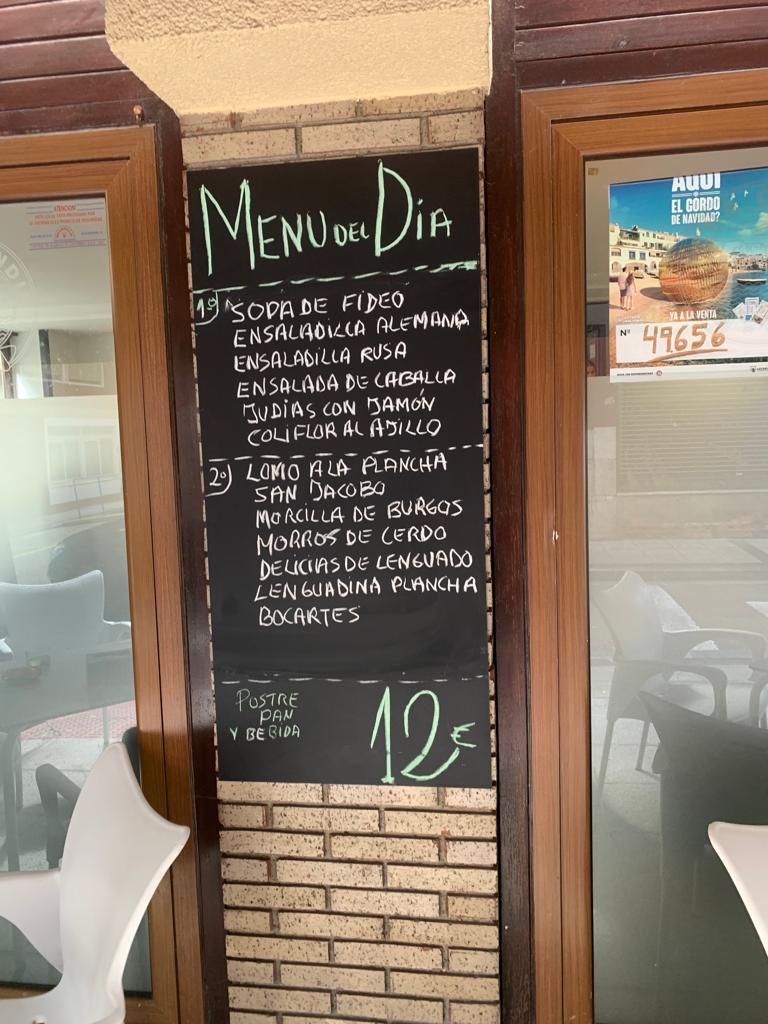 MENU DEL DÍA
1º SOPA DE FIDEO
ENSALADILLA ALEMANA
ENSALADILLA RUSA
ENSALADA DE CABALLA
JUDIAS CON JAMÓN
COLIFLOR AL AJILLO
2º LOMO A LA PLANCHA
SAN JACOBO
MORCILLA DE BURGOS
MORROS DE CERDO
DELICIAS DE LENGUADO
LENGUADINA PLANCHA
BOCARTES
POSTRE
PAN
Y BEBIDA
12€
ATENCION
AQUÍ
EL GORDO
DE NAVIDAD?
YA A LA VENTA
Nº 49656